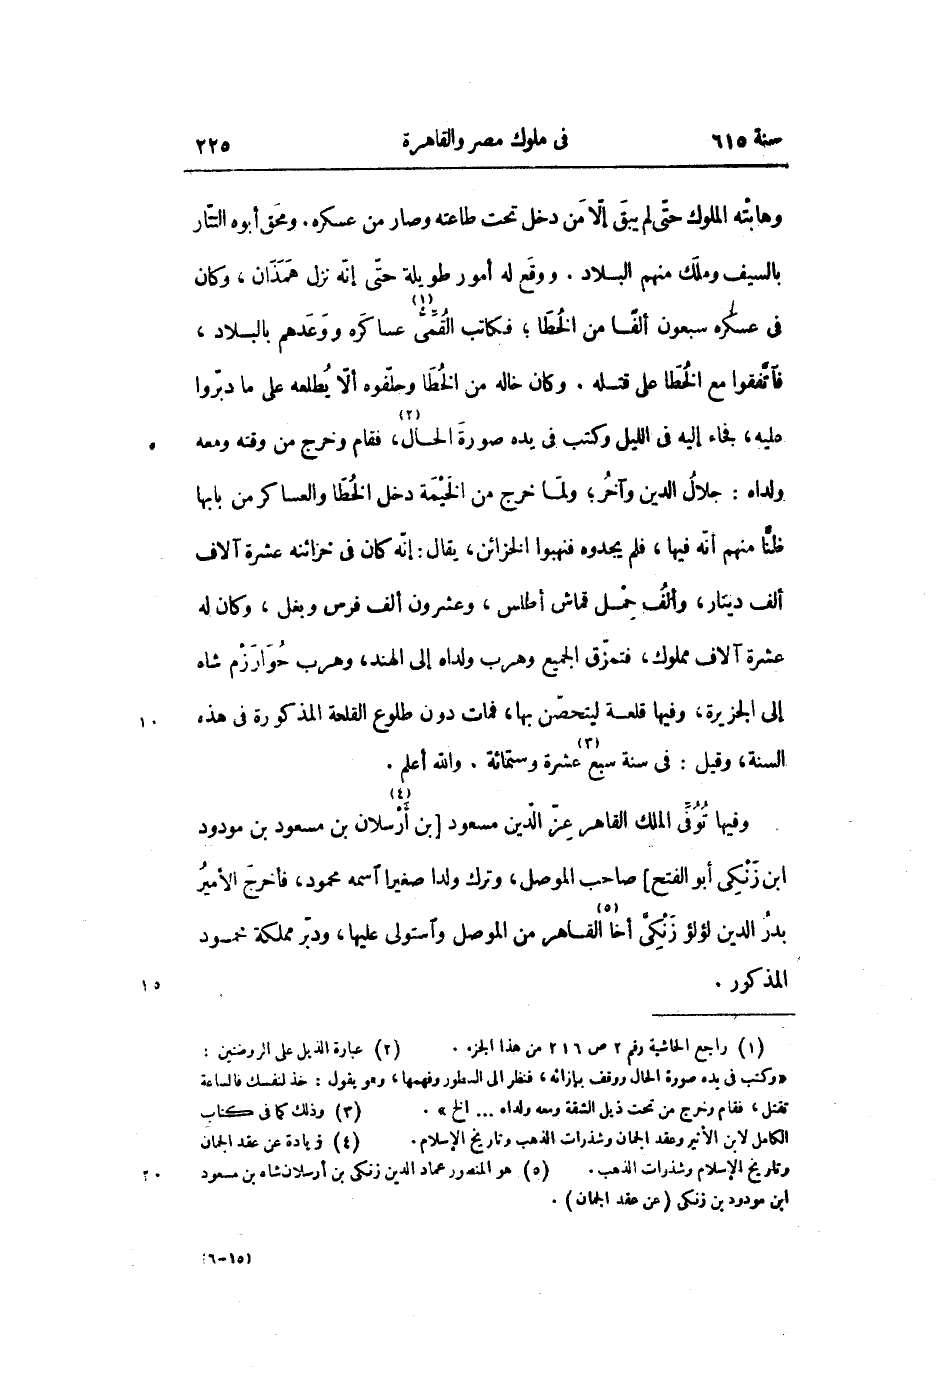 سنة ٦١٥ فى ملوك مصر والقاهرة ٢٢٥
وهابتْه الملوك حتّى لم يبقَ إلّا مَن دخل تحت طاعته وصار من عسكره. ومَحَق أبوه التتّار
بالسيف وملَك منهم البلاد. ووقَع له أمور طويلة حتّى إنّه نزل هَمَذَان، وكان
فى عسكره سبعون ألفًا من الخُطَا؛ فكاتب القُمِّىّ (١) عساكَره ووَعَدهم بالبلاد،
فاَتّفقوا مع الخُطَا على قتله. وكان خاله من الخُطَا وحلّفوه ألّا يُطلعه على ما دبّروا
عليه، فجاء إليه فى الليل وكتب فى يده صورةَ الحال (٢)، فقام وخرج من وقته ومعه ٥
ولداه: جلالُ الدين وآخرُ؛ ولمّا خرج من الخَيْمَة دخل الخُطَا والعساكر من بابها
ظنًّا منهم أنّه فيها، فلم يجدوه فنهبوا الخزائن، يقال: إنّه كان فى خزائنه عشرة آلاف
ألف دينار، وألفُ حِمْل قماش أطلس، وعشرون ألف فرس وبغل، وكان له
عشرة آلاف مملوك، فتمزّق الجميع وهرب ولداه إلى الهند، وهرب خُوَارَزْم شاه
إلى الجزيرة، وفيها قلعة ليتحصّن بها، فمات دون طلوع القلعة المذكورة فى هذه ١٠
السنة، وقيل: فى سنة سبع (٣) عشرة وستمائة. والله أعلم.
وفيها تُوُفِّى الملك القاهر عِزّ الدّين مسعود [بن أَرْسلان (٤) بن مسعود بن مودود
ابن زَنْكِى أبو الفتح] صاحب الموصل، وترك ولدا صغيرا اَسمه محمود، فأخرجَ الأميرُ
بدرُ الدين لؤلؤ زَنْكِىَّ أخا القاهر (٥) من الموصل واَستولى عليها، ودبّر مملكة محمود
المذكور. ١٥
(١) راجع الحاشية رقم ٢ ص ٢١٦ من هذا الجزء. (٢) عبارة الذيل على الروضتين:
«وكتب فى يده صورة الحال ووقف بإزائه، فنظر الى السطور وفهمها، وهو يقول: خذ لنفسك فالساعة
تقتل، فقام وخرج من تحت ذيل الشقة ومعه ولداه ... الخ». (٣) وذلك كما فى كتاب
الكامل لابن الأثير وعقد الجمان وشذرات الذهب وتاريخ الإسلام. (٤) زيادة عن عقد الجمان
وتاريخ الإسلام وشذرات الذهب. (٥) هو المنصور عماد الدين زنكى بن أرسلان شاه بن مسعود ٢٠
ابن مودود بن زنكى (عن عقد الجمان).
(٦-١٥)